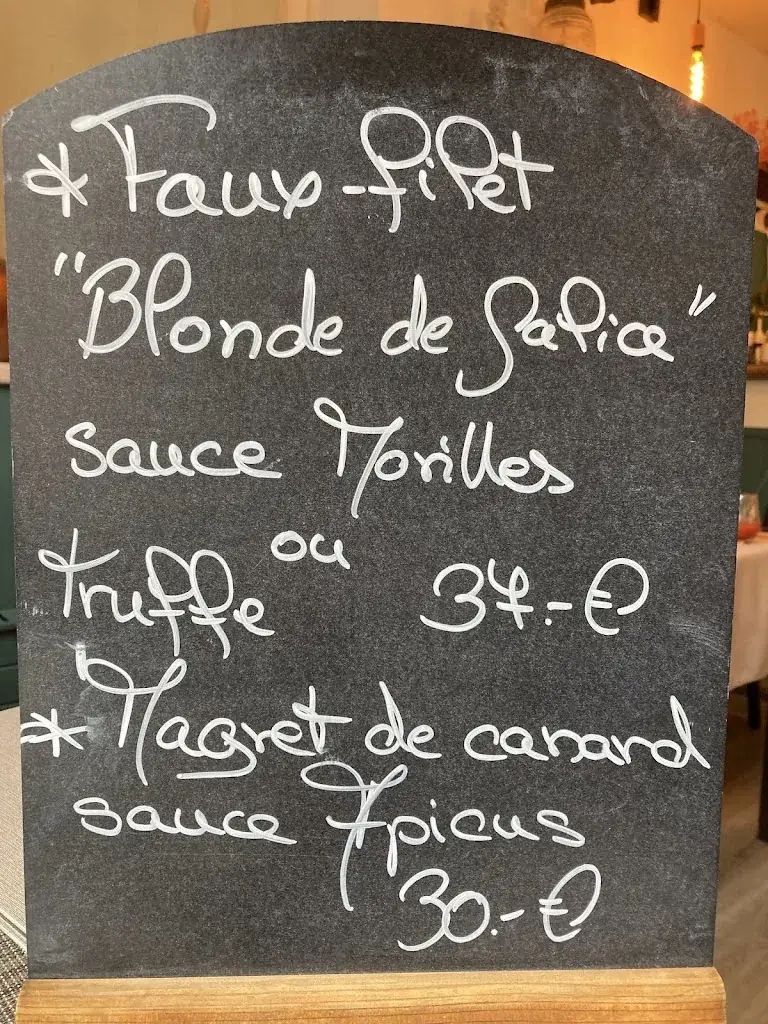 * Faux-filet
"Blonde de Galice"
sauce Morilles
ou
truffe 37.-€
* Magret de canard
sauce Apicus
30.-€